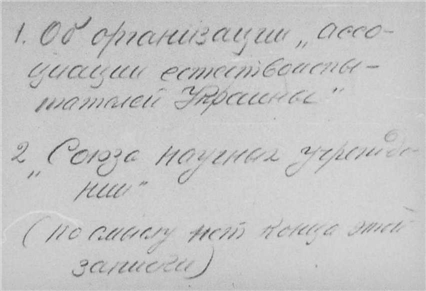 1. Об организации „ассо-
циации естествоиспы-
тателей Украины"
2 „Союза научных учрежде-
нии"
(по смыслу нет конца этой
записки)